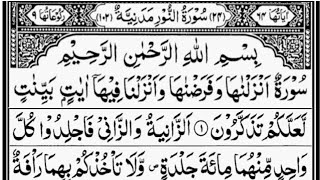 اٰیَاتُهَا ٦٤ (٢٤) سُوْرَةُ النُّوْرِ مَدَنِیَّةٌ (١٠٢) رُكُوْعَاتُهَا ٩
بِسْمِ اللّٰهِ الرَّحْمٰنِ الرَّحِیْمِ
سُوْرَةٌ اَنْزَلْنٰهَا وَفَرَضْنٰهَا وَاَنْزَلْنَا فِیْهَاۤ اٰیٰتٍۭ بَیِّنٰتٍ
لَّعَلَّكُمْ تَذَكَّرُوْنَ ① اَلزَّانِیَةُ وَالزَّانِیْ فَاجْلِدُوْا كُلَّ
وَاحِدٍ مِّنْهُمَا مِائَةَ جَلْدَةٍ ۪ وَّلَا تَاْخُذْكُمْ بِهِمَا رَاْفَةٌ